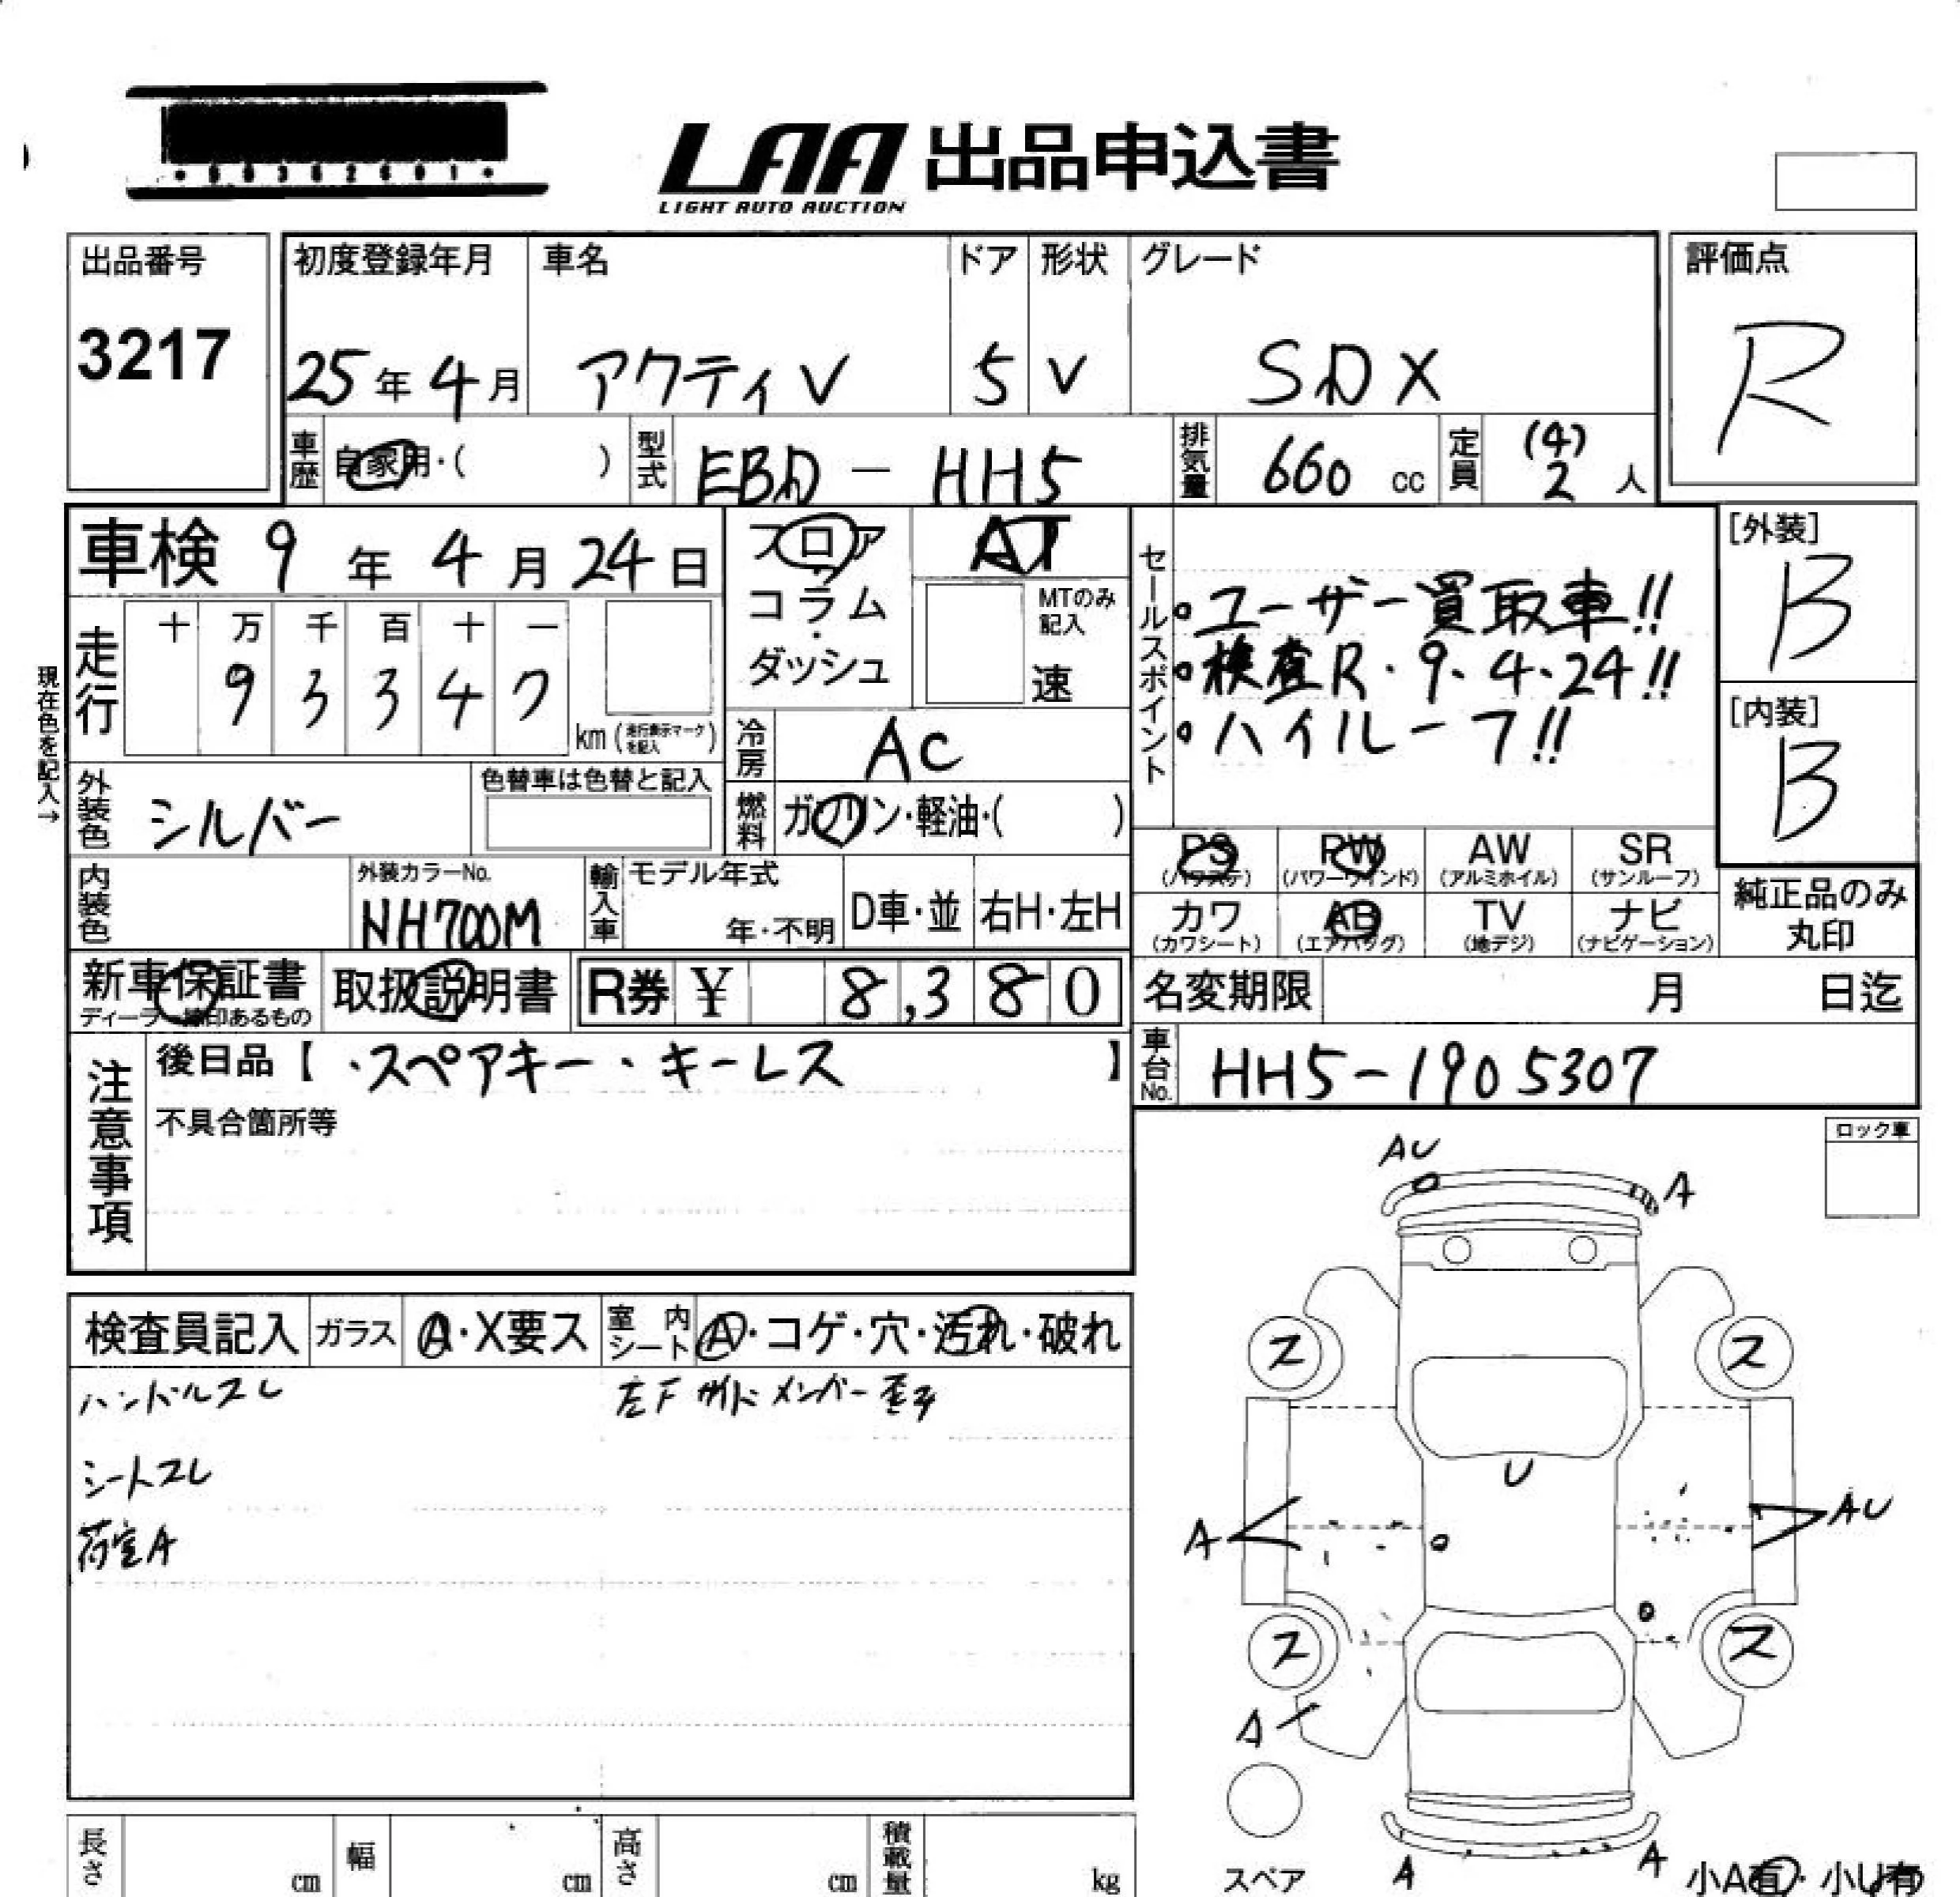 LAA 出品申込書
LIGHT AUTO AUCTION
出品番号
3217
初度登録年月
25年4月
車名
アクティV
ドア
5
形状
V
グレード
SDX
評価点
R
車歴
自家用・( )
型式
EBD-HH5
排気量
660 cc
定員
(4)
2人
車検 9年4月24日
フロア
・
コラム
・
ダッシュ
AT
MTのみ
記入
速
セールスポイント
・ユーザー買取車!!
・検査R・9.4.24!!
・ハイルーフ!!
[外装]
B
[内装]
B
現在色を記入→
走行
十 万 千 百 十 一
9 3 3 4 7
km(走行表示マークを記入)
冷房
AC
外装色
シルバー
色替車は色替と記入
燃料
ガソリン・軽油・( )
PS
(パワステ)
PW
(パワーウインド)
AW
(アルミホイル)
SR
(サンルーフ)
内装色
外装カラーNo.
NH700M
輸入車
モデル年式
年・不明
D車・並
右H・左H
カワ
(カワシート)
AB
(エアバッグ)
TV
(地デジ)
ナビ
(ナビゲーション)
純正品のみ
丸印
新車保証書
ディーラー捺印あるもの
取扱説明書
R券 ¥ 8,380
名変期限 月 日迄
車台No.
HH5-1905307
注意事項
後日品【・スペアキー、キーレス】
不具合箇所等
ロック車
検査員記入
ガラス
A・X要ス
室内
シート
A・コゲ・穴・汚れ・破れ
ハンドルスレ
左Fサイドメンバー歪み
シートスレ
荷室A
AU
A
ス
ス
U
A
AU
ス
ス
A
スペア
A
A
小A有・小U有
長さ
cm
幅
cm
高さ
cm
積載量
kg